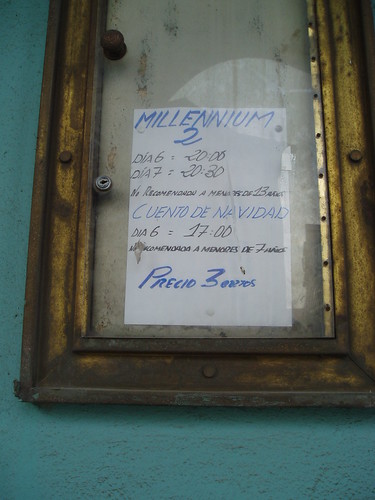 MILLENNIUM
2
DIA 6 = 20:00
DIA 7 = 20:30
NO RECOMENDADA A MENORES DE 13 AÑOS
CUENTO DE NAVIDAD
DIA 6 = 17:00
NO RECOMENDADA A MENORES DE 7 AÑOS
PRECIO 3 EUROS